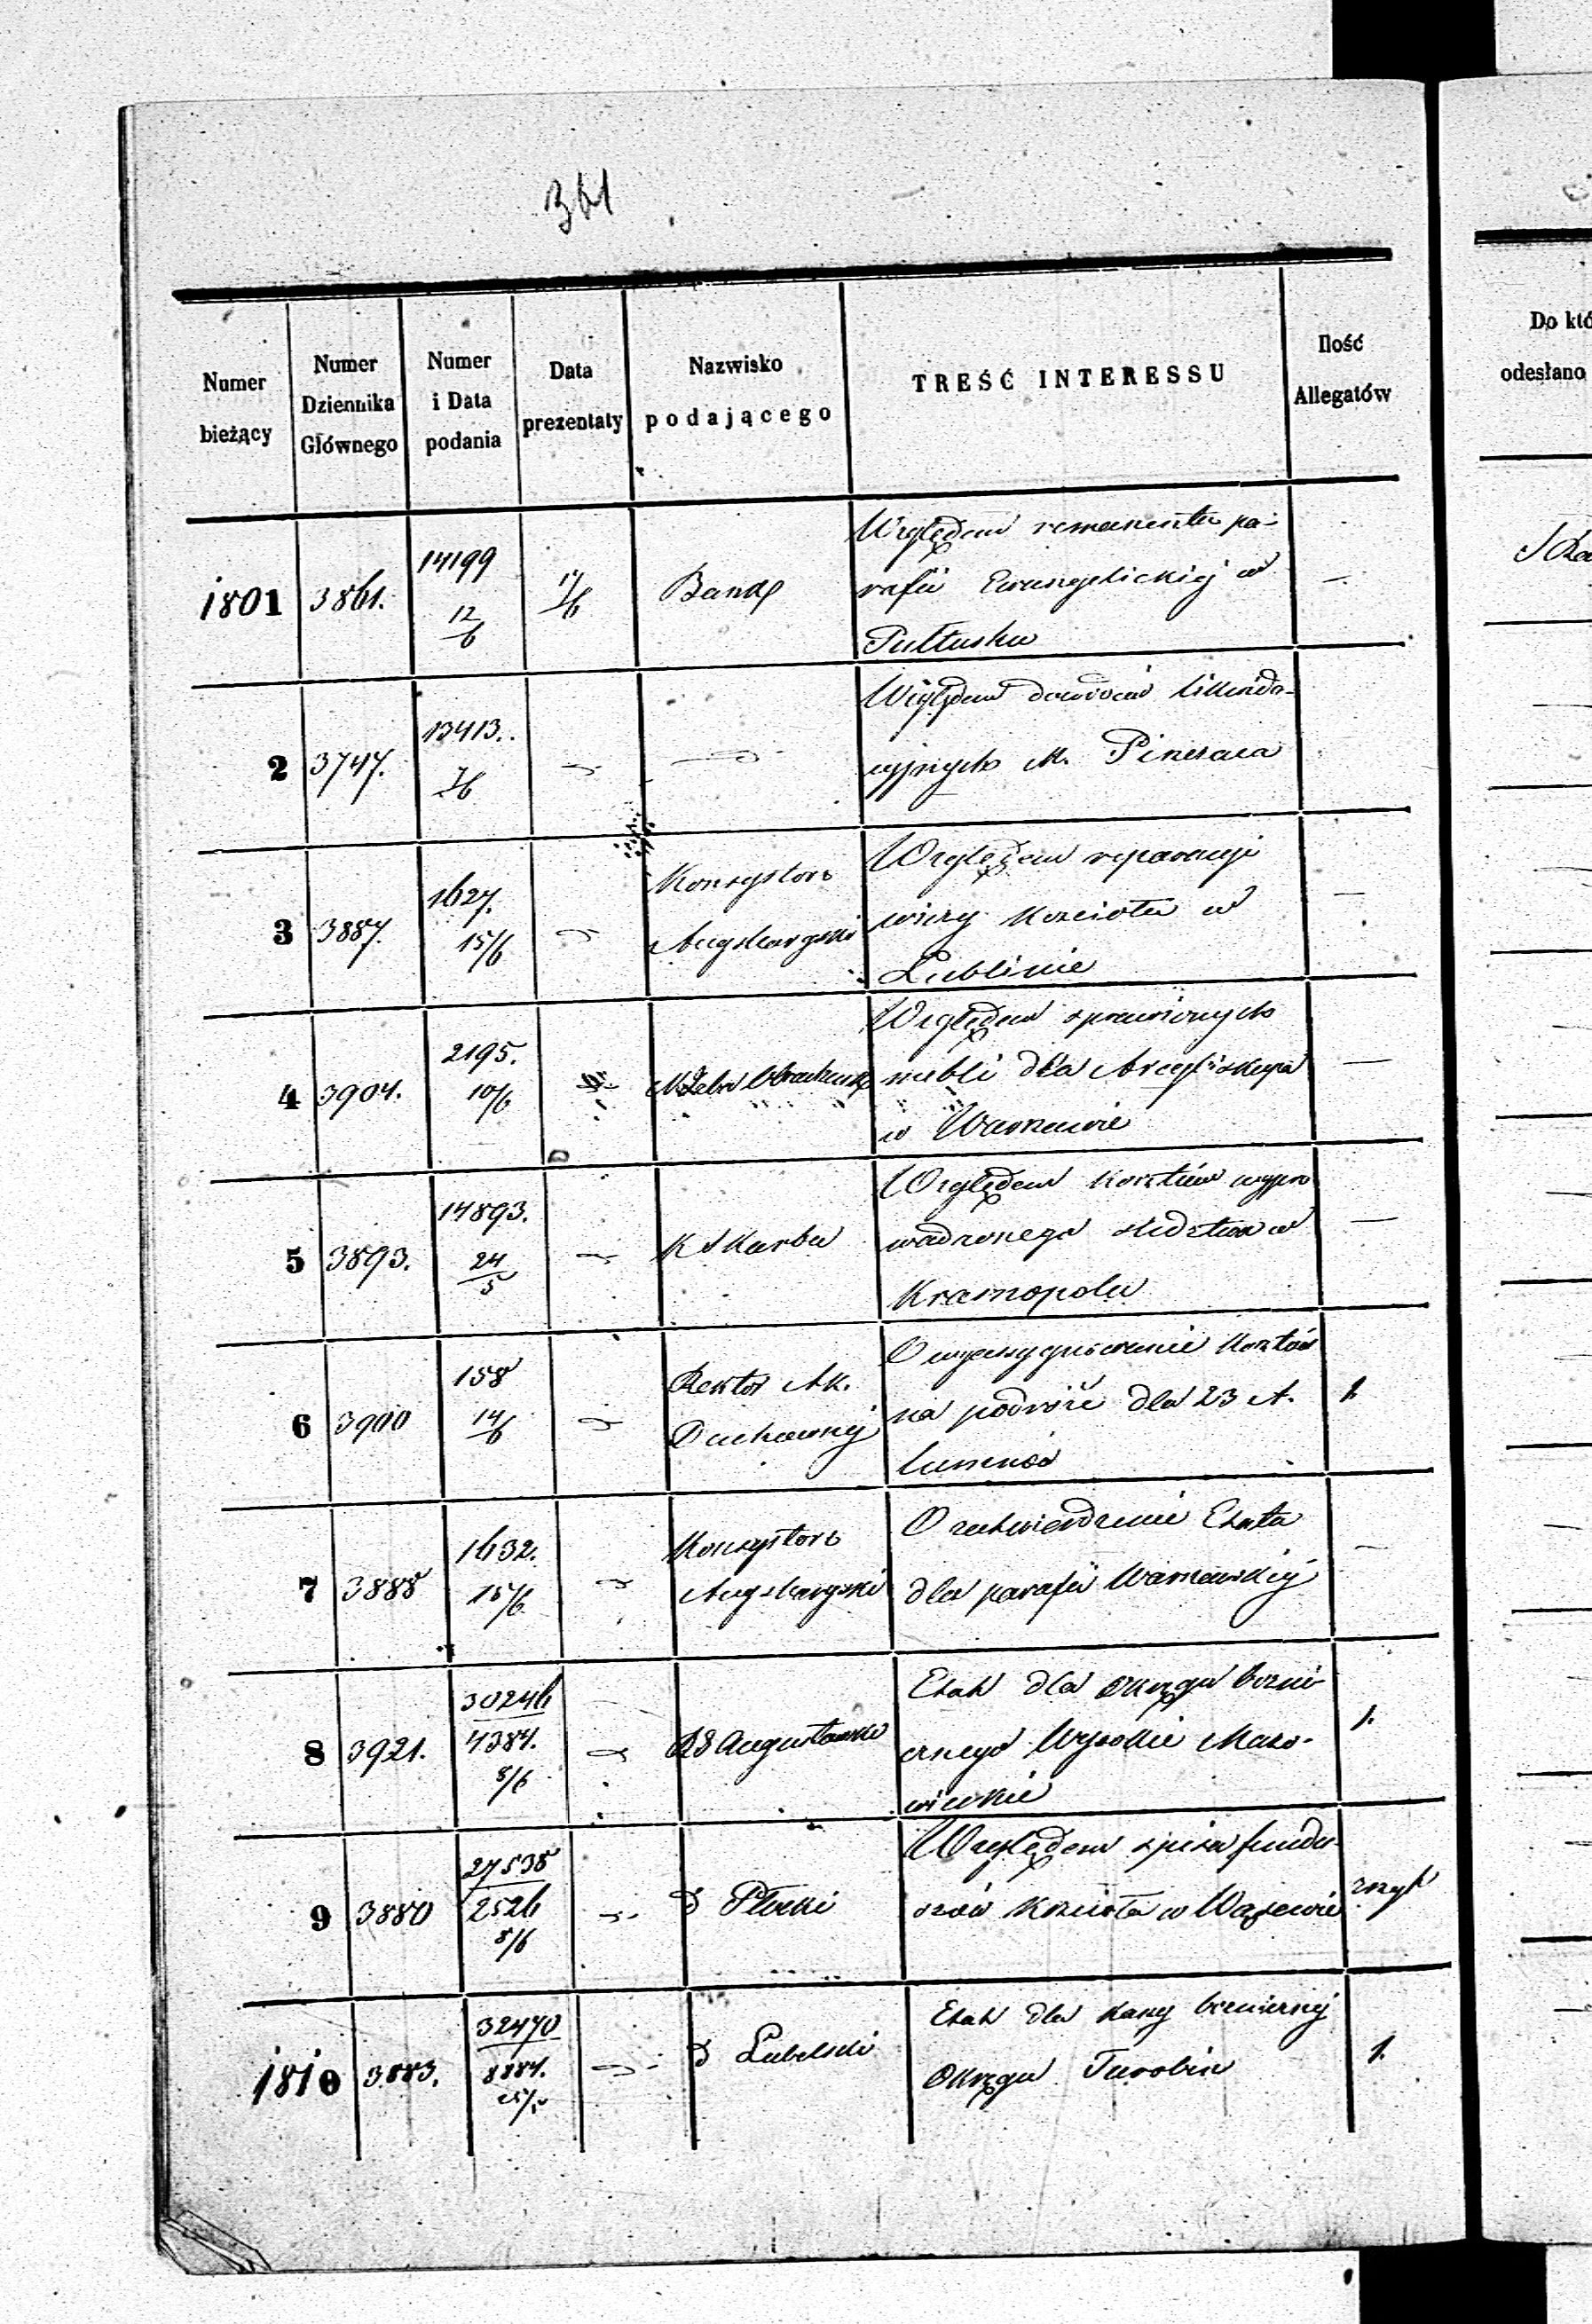 361
Numer bieżący
Numer Dziennika Głównego
Numer i Data podania
Data prezentaty
Nazwisko podającego
TREŚĆ INTERESSU
Ilość Allegatów
Do któ
odesłano
1801 3861. 14199 12/6 17/6 Bank
Względem remanentu pa-
rafii Ewangelickiej w
Pułtusku
2 3747. 13413. 7/6
Względem dowodów likwida-
cyjnych M.
3 3887. 1627. 15/6 Konsystorz
Augsburgski
Względem reparacyi
wieży Kościoła w
Lublinie
4 3904. 2195. 10/6
Względem sprawionych
mebli dla Arcybiskupa
w Warszawie
5 3893. 14893. 24/5 K Skarbu
Względem kosztów wypro
wadzonego śledztwa w
Krasnopolu
6 3900 158 14/6 Rektor Ak.
Duchownej
O wyasygnowanie kosztów
na podróże dla 23 A.
lumnów
1.
7 3888 1632. 15/6 Konsystorz
Augsburgski
O zatwierdzenie Etatu
dla parafii Warszawskiej
8 3921. 30246/4384. 8/6 RG Augustowski
Etat dla okręgu bożni-
cznego Wysokie Mazo-
wieckie
1.
9 3880 27538/2526 8/6 D Płocki
Względem spisu fundu-
szów Kościoła w Wąsewie
zszyt
1810 3883. 32470/8884. D Lubelski
Etat dla kasy bożniczej
Okręgu Turobin
1.